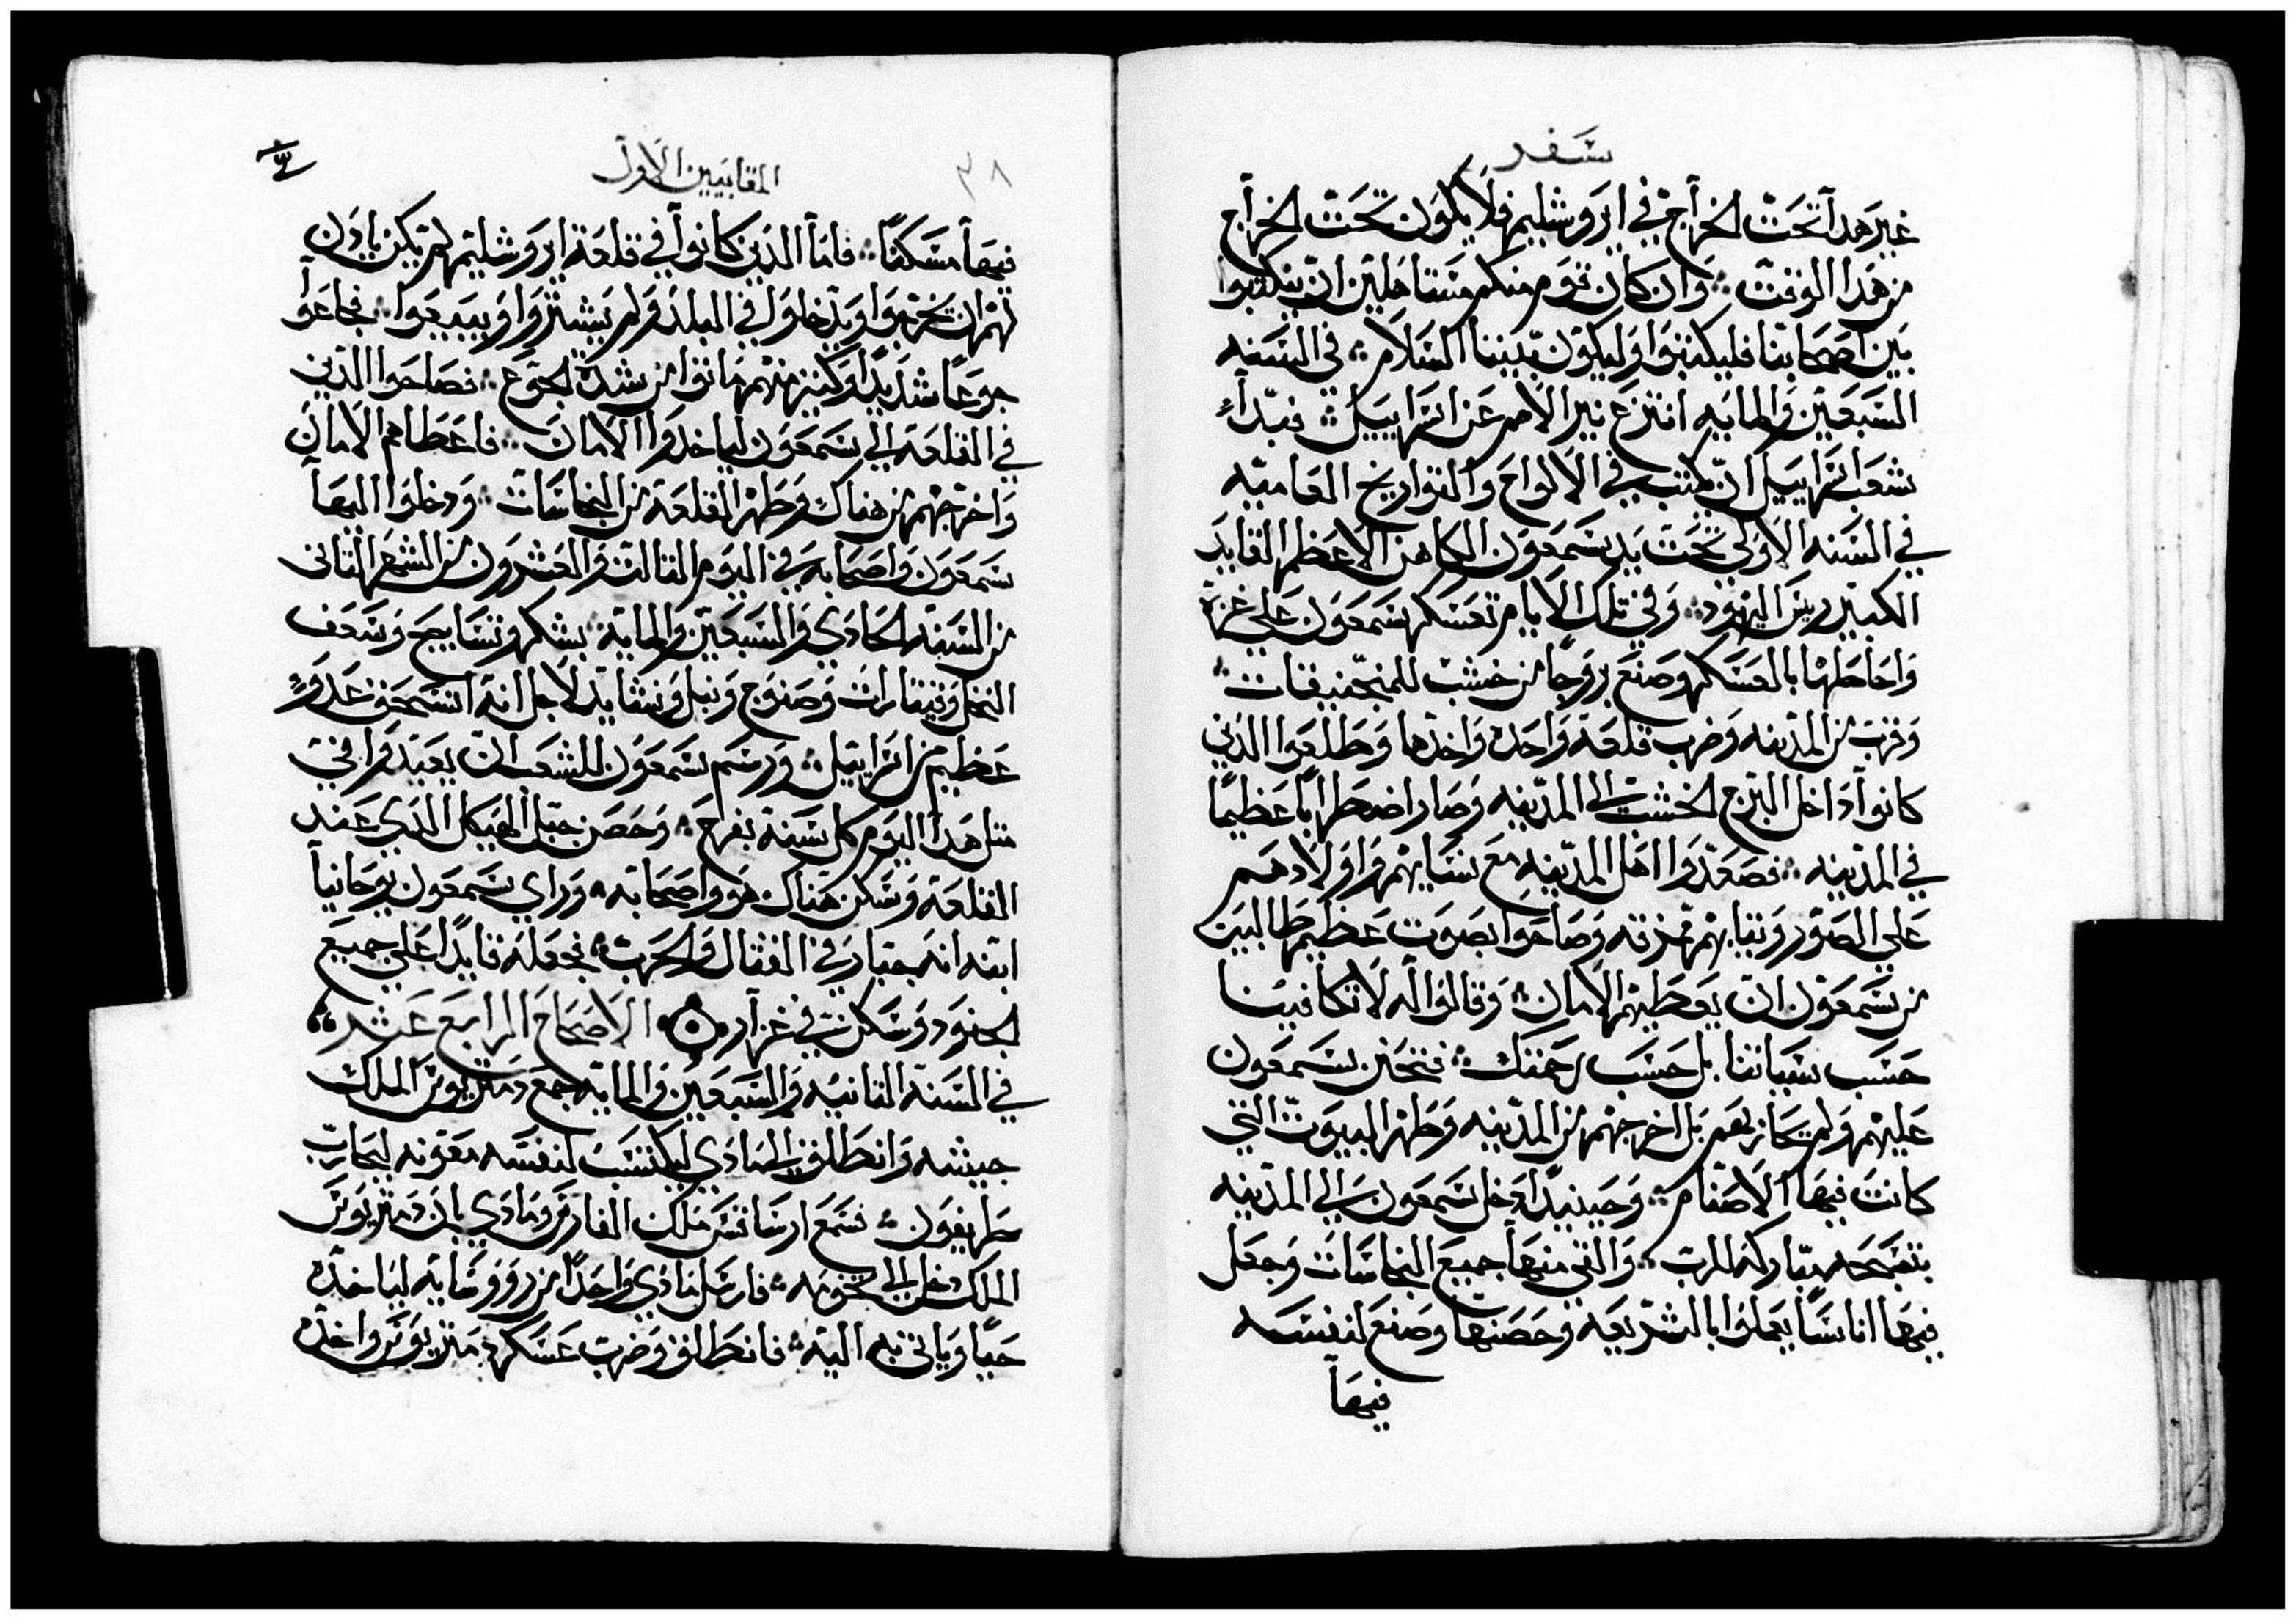 سفر
غير هدا تحت الخراج في ايروشليم فلا يكون تحت الخراج
من هدا الوقت ܀ وان كان قوم منكم مستاهلين ان يكتبوا
بين اصحابنا فليكتبوا وليكون بيننا السلام ܀ في السنه
السبعين والمايه انتزع نير الامم عن اسراييل ܀ فبدا
شعب اسراييل ان يكتب في الالواح والتواريخ العاميه
في السنه الاولي تحت يد سمعون الكاهن الاعظم القايد
الكبير ريس اليهود ܀ وفي تلك الايام تعسكر سمعون علي غزة
واحاطها بالعسكر وصنع بروجا من خشب للمنجنيقات ܀
وقرب من المدينه وضرب قلعة واحده واخدها وطلعوا الدين
كانوا داخل البرج الخشب الي المدينه وصار اضطرابا عظيما
في المدينه ܀ فصعدوا اهل المدينه مع نسايهم واولادهم
علي الصور وثيابهم مخزقه وصاحوا بصوت عظيم طالبين
من سمعون ان يعطيهم الامان ܀ وقالوا له لا تكافينا
حسب سياتنا بل حسب رحمتك ܀ فتحنن سمعون
عليهم ولم يحاربهم بل اخرجهم من المدينه وطهر البيوت التي
كانت فيها الاصنام ܀ وحينيد دخل سمعون الي المدينه
بتسبحه مباركه للرب ܀ والقي منها جميع النجاسات وجعل
فيها اناسا يعملوا بالشريعه وحصنها وصنع لنفسه
فيها
المقابيين الاول
٣٨
فيها مسكنا ܀ فاما الدين كانوا في قلعة ايروشليم لم يكن يادن
لهم ان يخرجوا ويدخلوا في البلد ولم يشتروا ويبيعوا ܀ فجاعوا
جوعا شديدا وكثير منهم ماتوا من شدة الجوع ܀ فصاحوا الدين
في القلعة الي سمعون لياخدوا الامان ܀ فاعطاهم الامان
واخرجهم من هناك وطهر القلعة من النجاسات ܀ ودخلوا اليها
سمعون واصحابه في اليوم التالت والعشرون من الشهر التاني
من السنة الحادي والسبعين والماية ܀ بشكر وتسابيح وسعف
النخل وقيتارات وصنوج ونبل ونشايد لاجل انه انسحق عدو
عظيم من اسراييل ܀ ورسم سمعون للشعب ان يعيدوا في
متل هدا اليوم كل سنة بفرح ܀ وحصن جبل الهيكل الدي عند
القلعة وسكن هناك هو واصحابه ܀ وراي سمعون يوحانيا
ابنه انه جبار في القتال والحرب ܀ فجعله قايدا علي جميع
الجنود وسكن في غزار ܀ الاصحاح الرابع عشر
في السنة التانيه والسبعين والمايه جمع دمتريوس الملك
جيشه وانطلق الي مادي ليكتسب لنفسه معونه ليحارب
طريفون ܀ فسمع ارساقس ملك الفارس ومادي بان دمتريوس
الملك دخل الي تخومه ܀ فارسل مادي واحدا من رووسايه لياخده
حيا وياتي به اليه ܀ فانطلق وضرب عسكر دمتريوس واخده